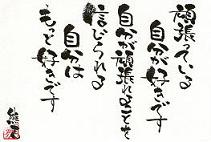 頑張っている
自分が好きです
自分が頑張れることを
信じられる
自分は
もっと好きです